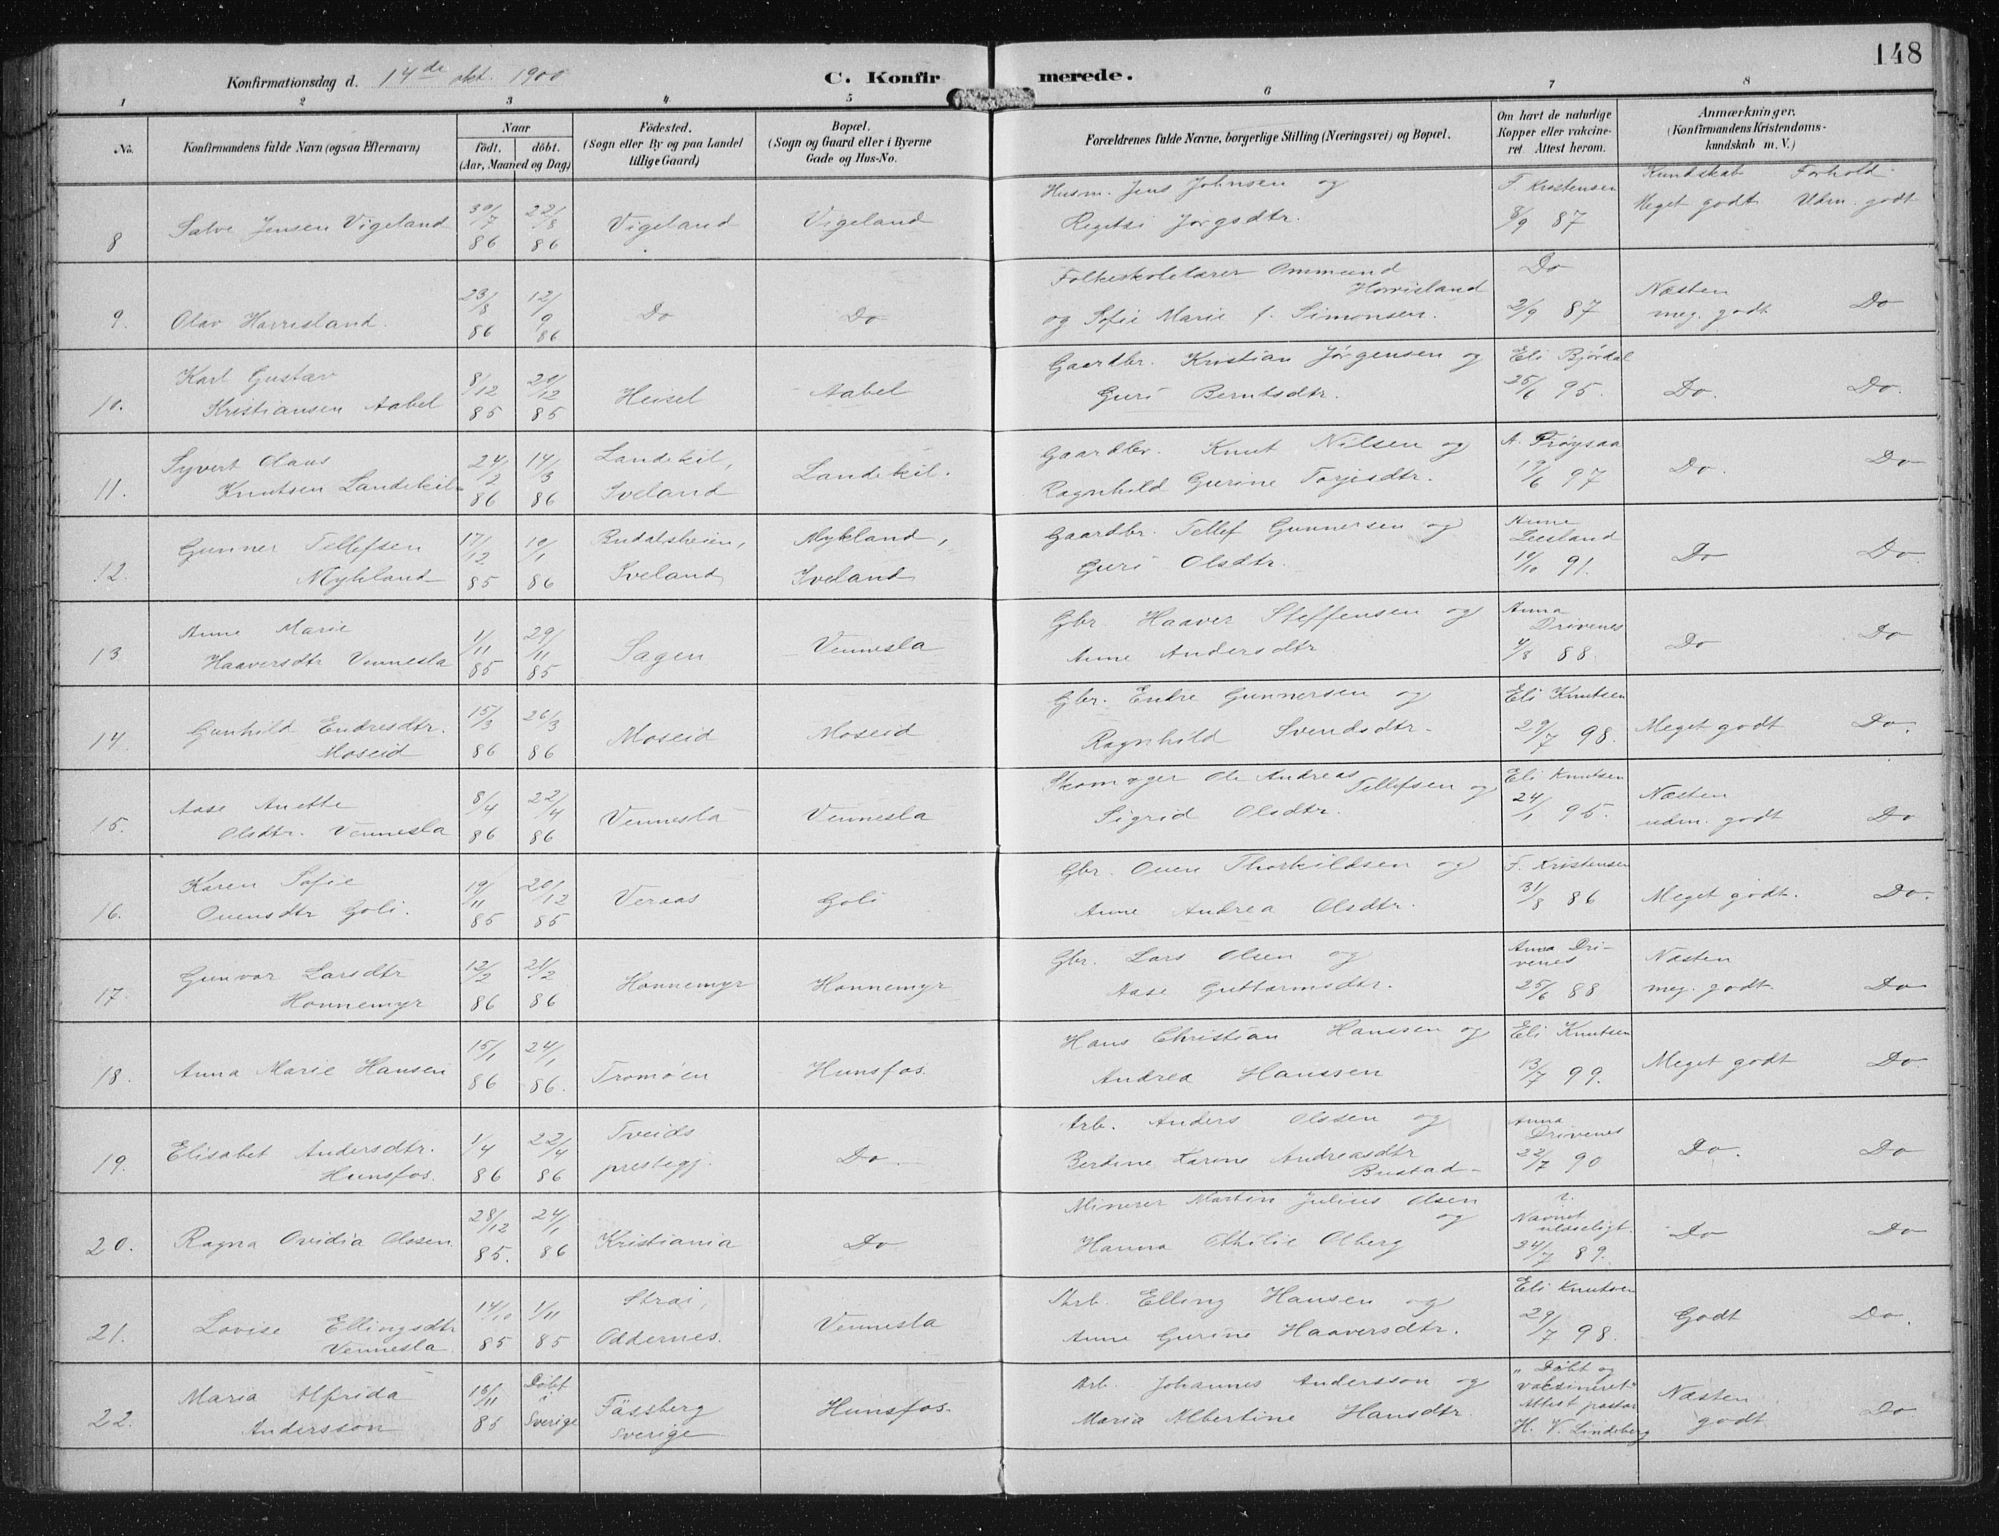 148
Konfirmationsdag d. 14de okt. 1900
C. Konfirmerede.
1 2 3 4 5 6 7 8
No.
Konfirmandens fulde Navn (ogsaa Efternavn)
Naar
födt. döbt.
(Aar, Maaned og Dag)
Födested.
(Sogn eller By og paa Landet
tillige Gaard)
Bopæl.
(Sogn og Gaard eller i Byerne
Gade og Hus-No.
Forældrenes fulde Navne, borgerlige Stilling (Næringsvei) og Bopæl.
Om havt de naturlige
Kopper eller vakcine-
ret. Attest herom.
Anmærkninger.
(Konfirmandens Kristendoms-
kundskab m. V.)
Kundskab Forhold
8 Salve Jensen Vigeland 30/7 86 22/8 86 Vigeland Vigeland
Husm. Jens Johnsen og
Regitzi Jørgsdtr.
F. Kristensen
8/9 87
Meget godt Udm. godt
9. Olav Horrisland. 23/8 86 12/9 86 Do Do
Folkeskolelærer Ommund
Horrisland
og Sofie Marie f. Simonsen.
Do
2/9 87
Næsten
meg. godt Do
Karl Gustav
10. Kristiansen Aabel 8/12 85 20/12 85 Heisel Aabel
Gaardbr. Kristian Jørgensen og
Guri Berntsdtr.
Eli Bjørdal
25/6 95.
Do. Do.
Syvert Olaus
11. Knutsen Landekil 24/2 86 14/3 86 Landekil, Iveland Landekil.
Gaardbr. Knut Nilsen og
Ragnhild Gurine Torjisdtr.
A. Frøysaa
19/6 97
Do. Do
Gunner Tellefsen
12. Mykland 17/12 85 10/1 86 Budalsheien, Iveland Mykland, Iveland
Gaardbr. Tellef Gunnersen og
Guri Olsdtr.
Anne
Leesland
10/10 91.
Do Do.
Anne Marie
13. Haaversdtr Vennesla 1/11 85 29/11 85 Sagen Vennesla
Gbr. Haaver Steffensen og
Anne Andersdtr
Anna
Drivenes
4/8 88.
Do Do
14. Gunhild Endresdtr.
Moseid 15/3 86 26/3 86 Moseid Moseid
Gbr. Endre Gunnersen og
Ragnhild Svendsdtr.
Eli Knutsen
29/7 98.
Meget godt Do.
Aase Anette
15. Olsdtr. Vennesla 8/4 86 22/4 86 Vennesla Vennesla
Skomager Ole Andreas
Tellefsen og
Sigrid Olsdtr.
Eli Knutsen
24/1 95.
Næsten
udm. godt Do
Karen Sofie
16. Ouensdtr Goli. 19/11 85 20/12 85 Veraas Goli
Gbr. Ouen Thorkildsen og
Anne Andrea Olsdtr.
F. Kristensen
31/8 86
Meget godt. Do.
Gunvor Larsdtr
17. Honnemyr 12/2 86 21/2 86 Honnemyr Honnemyr
Gbr. Lars Olsen og
Aase Guttormsdtr.
Anna Dri-
venes
25/6 88
Næsten
meg. godt Do
18. Anna Marie Hansen 15/1 86 24/1 86. Tromøen Hunsfos.
Hans Christian Hanssen og
Andrea Hanssen
Eli Knutsen
13/7 99.
Meget godt Do.
19. Elisabet Andersdtr.
Hunsfos. 1/4 86 22/4 86 Tveids
prestegj. Do.
Arb. Anders Olssen og
Berdine Karine Andreasdtr
Bustad
Anna
Drivenes
22/7 90
Do. Do
20. Ragna Ovidia Olssen 28/12 85. 24/1 86 Kristiania Do
Minerer Martin Julius Olsen
og
Hanna Othilie Olberg
?.
Navnet
ulæseligt.
24/7 89.
Do Do
21. Lovise Ellingsdtr
Vennesla. 14/10 85 1/11 85 Strai,
Oddernes. Vennesla
Arb. Elling Hansen og
Anne Gurine Haaversdtr.
Eli Knutsen
29/7 98.
Godt Do.
Maria Alfrida
22. Andersson 16/11 85 Døbt
i
Sverige Fässberg
Sverige Hunsfos.
Arb. Johannes Andersson og
Maria Albertine Hansdtr.
"Døbt og
vaksineret"
Attest pastor
H. V. Lindeberg
Næsten
godt Do